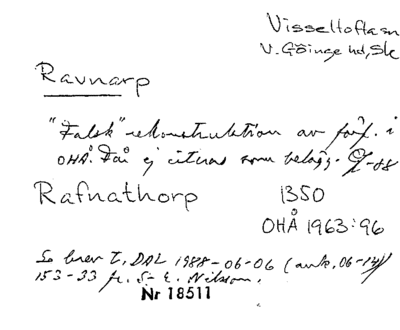 Visseltofta sn
V. Göinge hd, Sk
Ravnarp
"Falsk" rekonstruktion av förf. i
OHÅ. Får ej citeras som belägg.
Rafnathorp 1350
OHÅ 1963:96
Se brev t. DAL 1988-06-06 (ank. 06-14)
153-33 fr. S-E. Nilsson.
Nr 18511